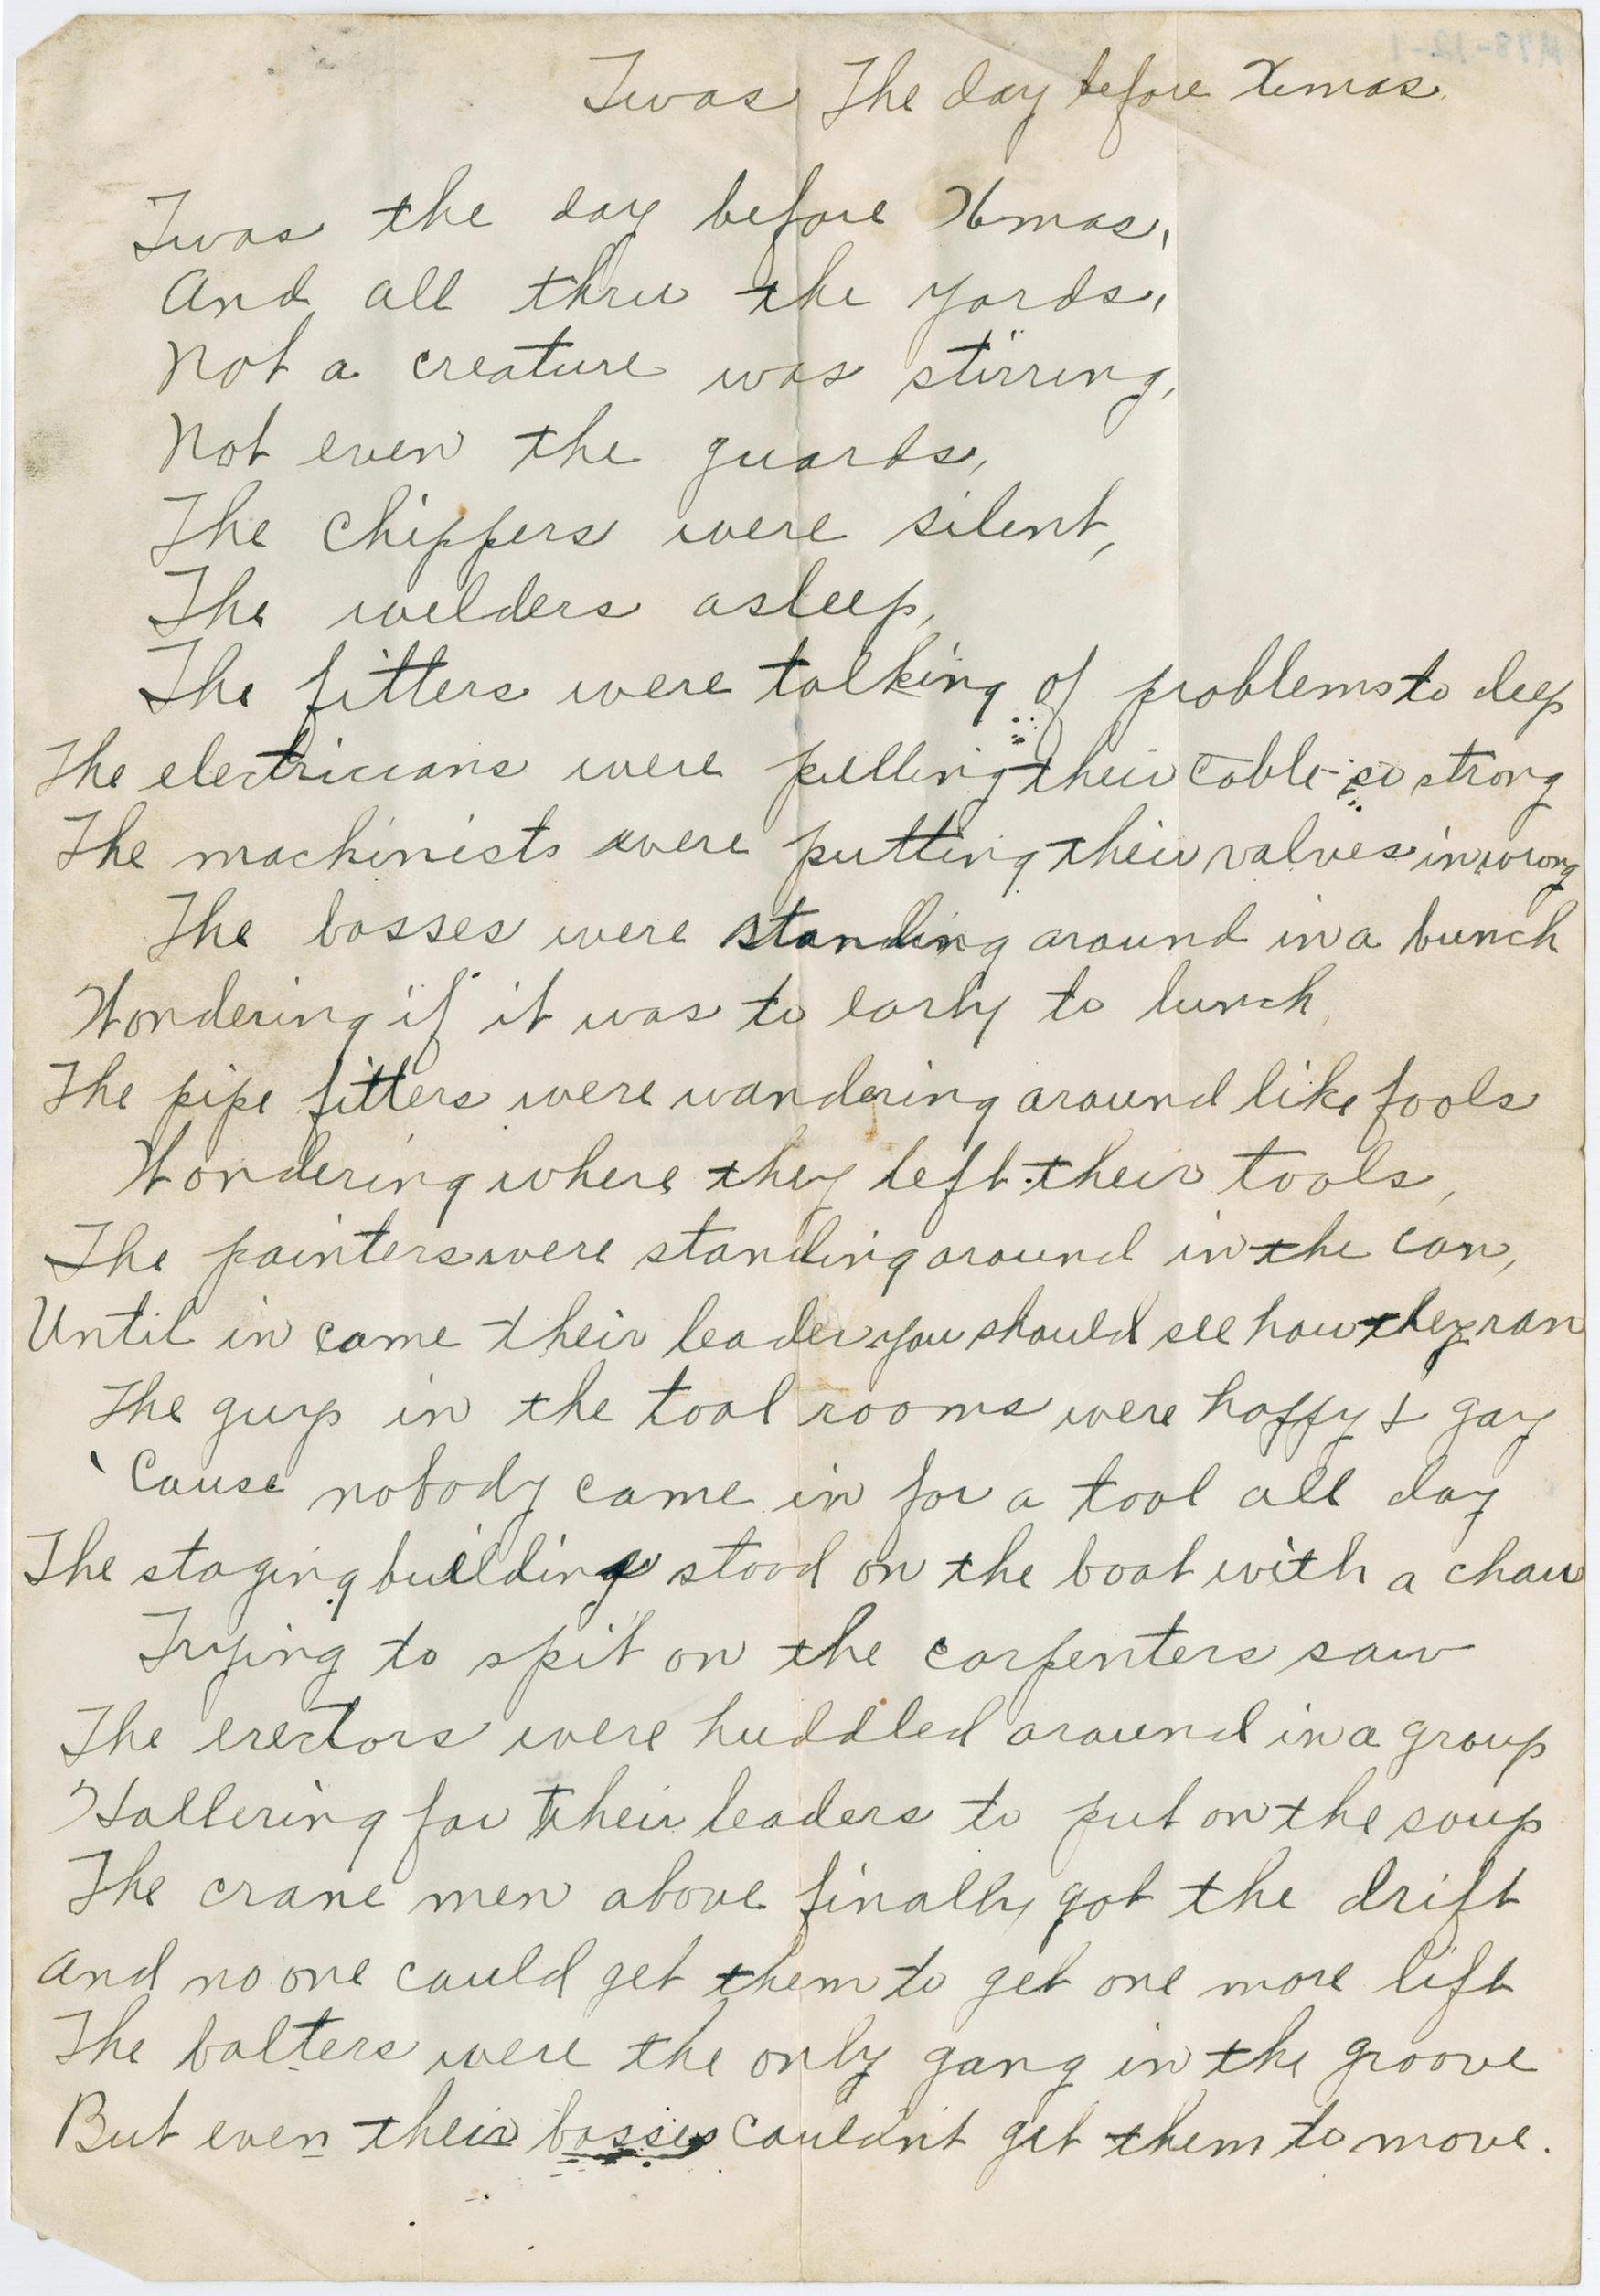 Twas The day before Xmas.
Twas the day before Xmas,
And all thru the yards,
Not a creature was stirring,
Not even the guards,
The chippers were silent,
The welders asleep,
The fitters were talking of problems to deep
The electricians were pulling their cable so strong
The machinists were putting their valves in wrong
The bosses were standing around in a bunch
Wondering if it was to early to lunch,
The pipe fitters were wandering around like fools
Wondering where they left their tools,
The painters were standing around in the can,
Until in came their leader you should see how they ran
The guys in the tool rooms were happy & gay
'Cause nobody came in for a tool all day
The staging building stood on the boat with a chaw
Trying to spit on the carpenters saw
The erectors were huddled around in a group
Hallering for their leaders to put on the soup
The crane men above finally got the drift
And no one could get them to get one more lift
The bolters were the only gang in the groove
But even their bosses couldn't get them to move.
M78-12-1